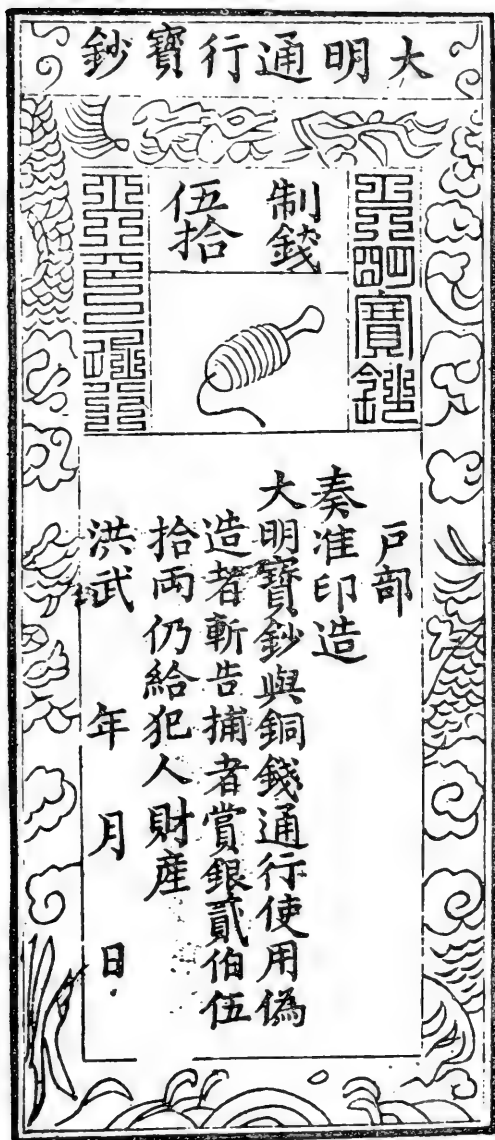 大明通行寶鈔
制錢
伍拾
戶部
奏准印造
大明寶鈔與銅錢通行使用偽
造者斬告捕者賞銀貳伯伍
拾兩仍給犯人財產
洪武 年 月 日